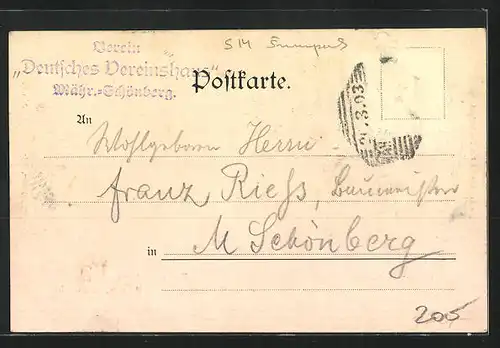 Verein
„Deutsches Vereinshaus“
Mähr.-Schönberg.
Postkarte.
3.03
An
Wohlgeboren Herrn
Franz Rieß, Baumeister
in M Schönberg
205